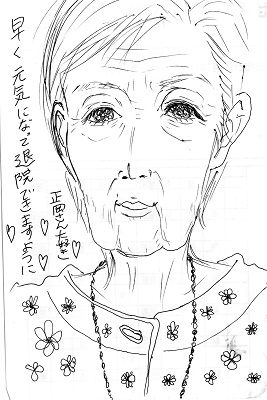 早く元気になって退院できますように
正岡さん大好き